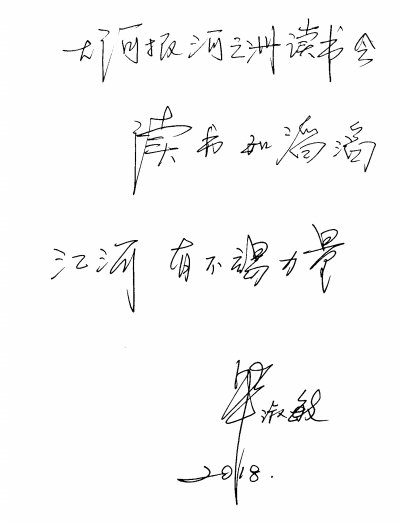 大河报河之洲读书会
读书如滔滔
江河 有不竭力量
毕淑敏
2018.